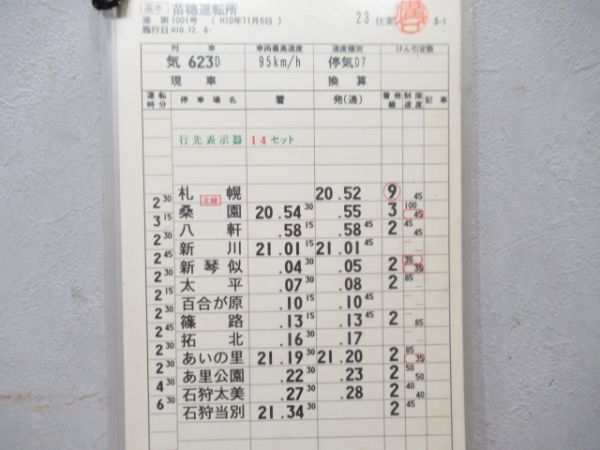 基本 苗穂運転所
道 第1001号 ( H10年11月5日 ) 23 仕業
施行日 H10.12. 8-
列車 車両最高速度 速度種別 けん引定数
気 623D 95km/h 停気D7
現車 換算
運転時分 停車場名 着 発(通) 着発線 制限速度 記事
行先表示器 14セット
札幌 北線 20.52 9 45
2 30 桑園 20.54 30 .55 3 100 45
3 15 八軒 .58 15 .58 45 2 45 45
2 30 新川 21.01 15 21.01 45
2 30 新琴似 .04 30 .05 2 35 35
2 30 太平 .07 30 .08 2 85
2 15 百合が原 .10 15 .10 45
2 30 篠路 .13 15 .13 45 2 85
2 45 拓北 .16 30 .17
2 30 あいの里 21.19 30 21.20 2 85 35
2 30 あ里公園 .22 30 .23 2 50 50
4 30 石狩太美 .27 30 .28 2 40 40
6 30 石狩当別 21.34 30 2 45